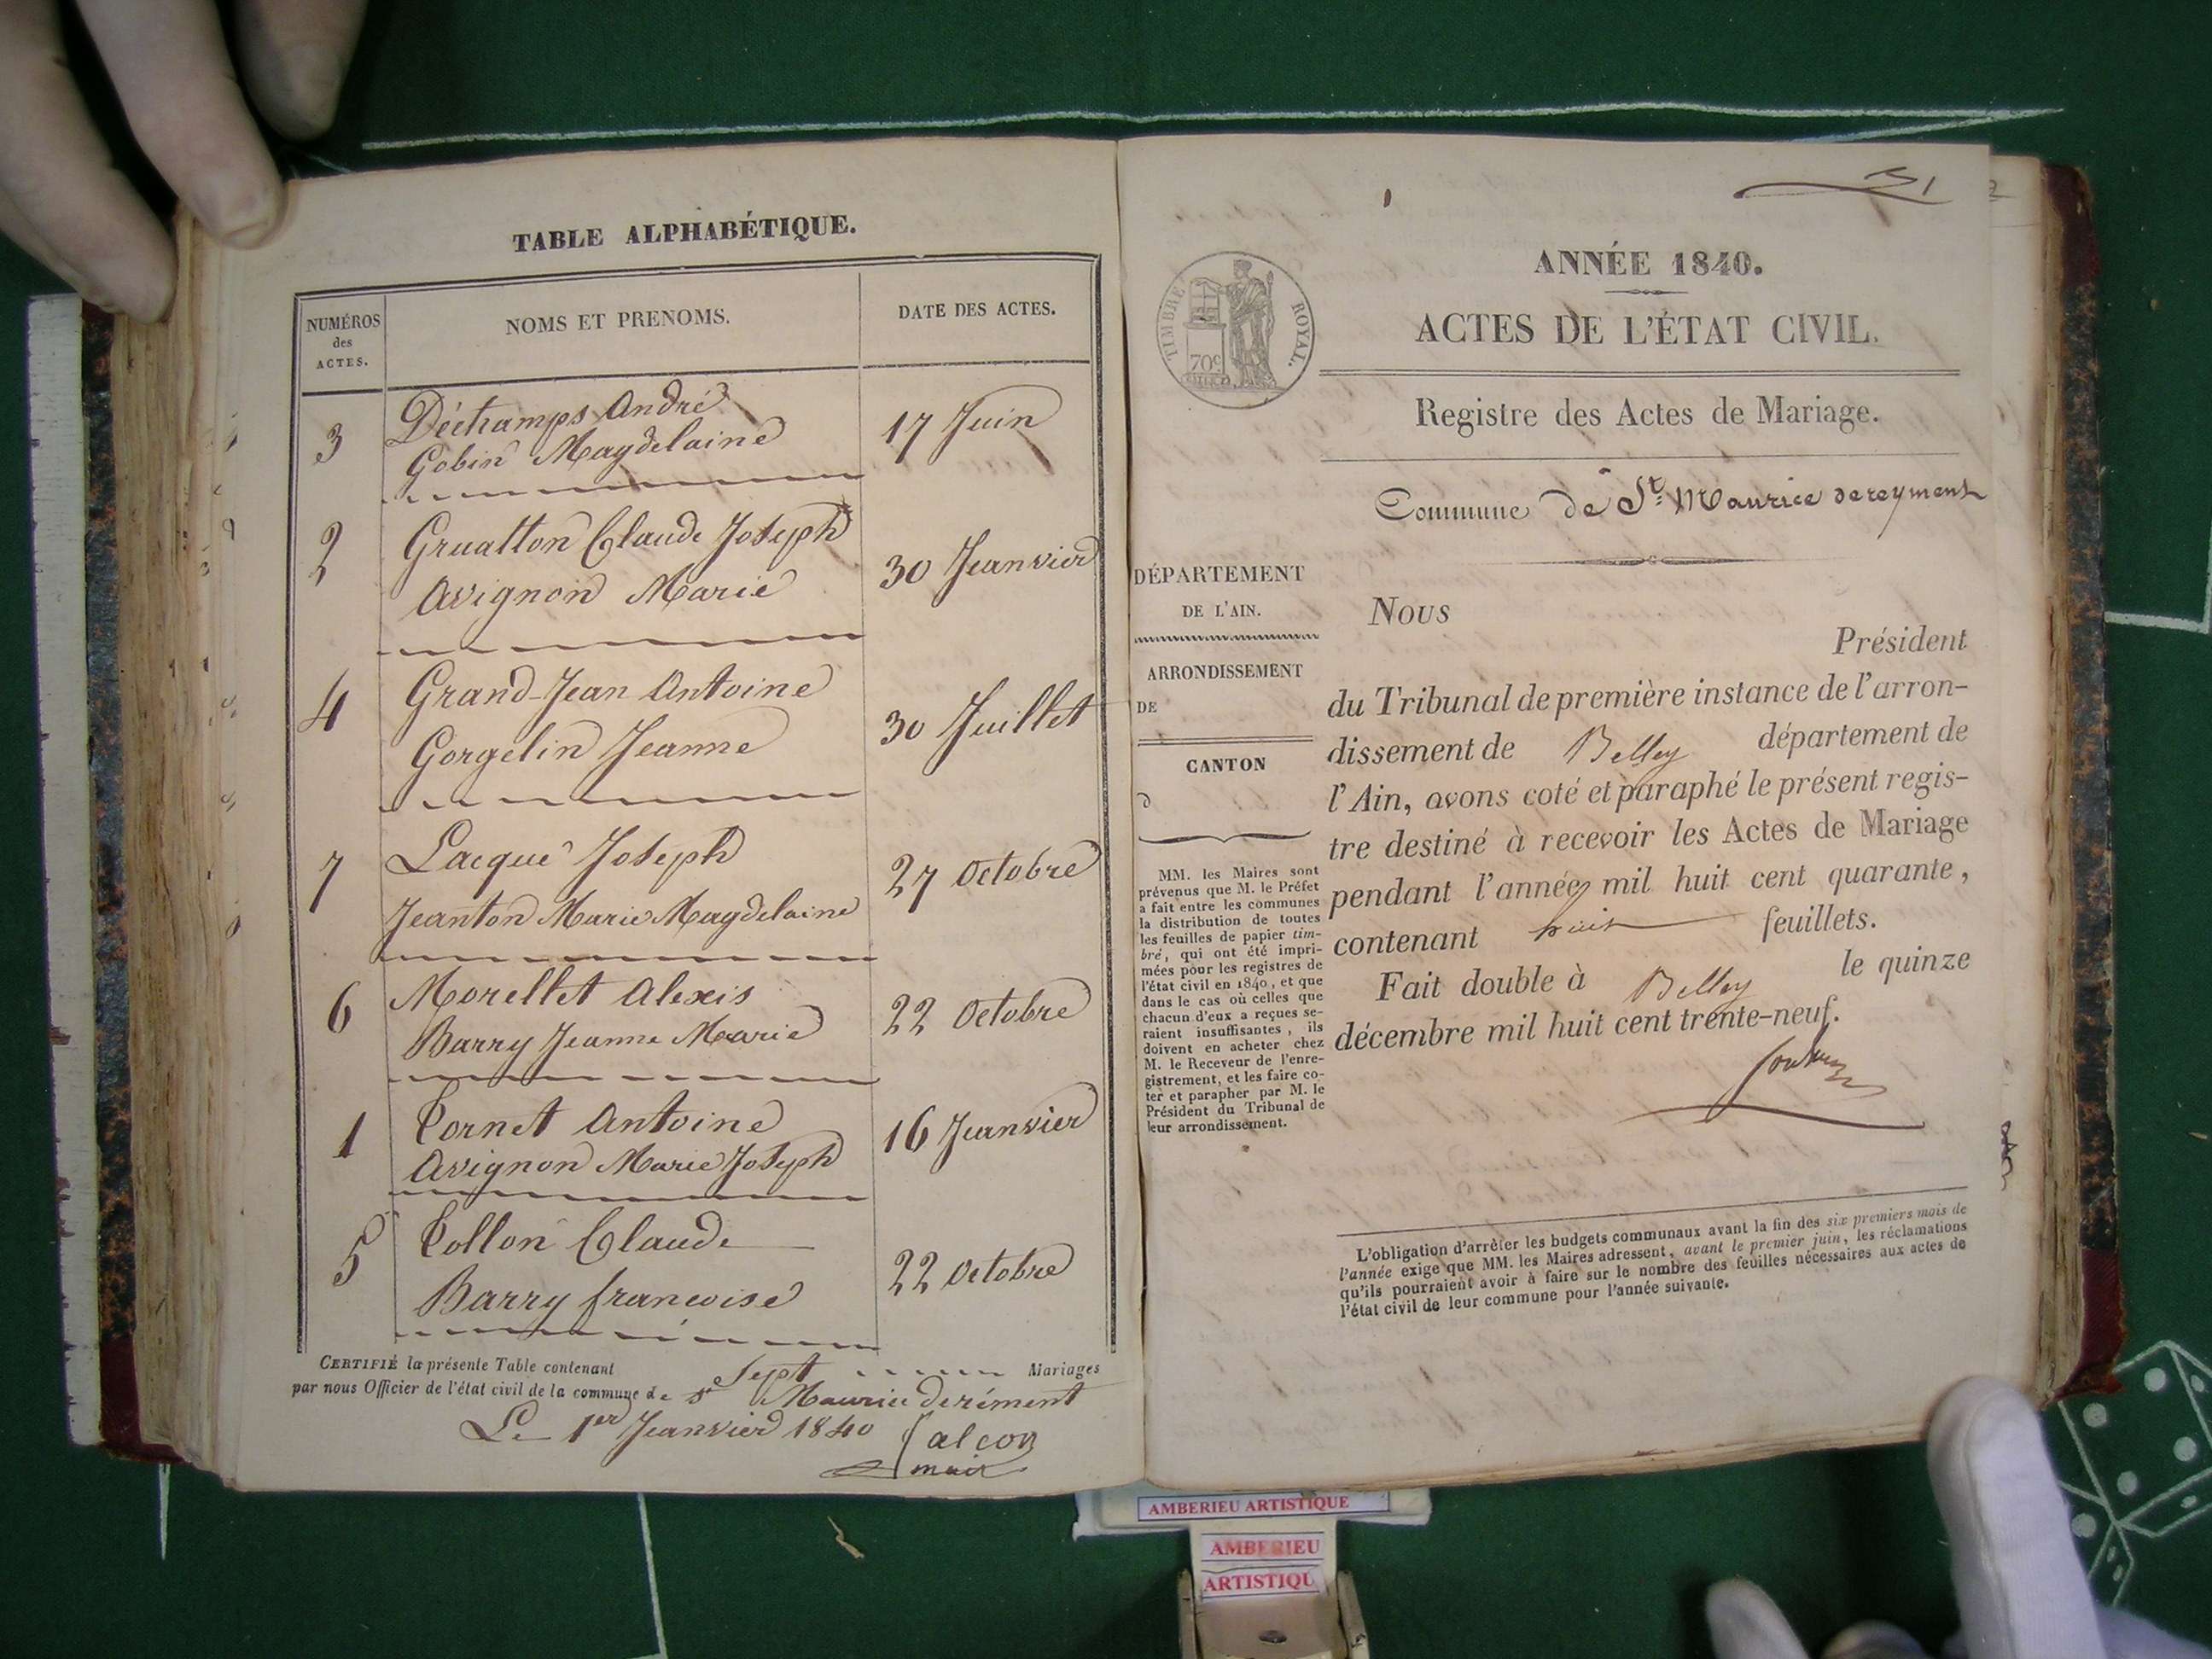 TABLE ALPHABÉTIQUE.
NUMÉROS
des
ACTES.
NOMS ET PRENOMS.
DATE DES ACTES.
3
Déchamps André
Gobin Magdelaine
17 Juin
2
Gruatton Claude Joseph
Avignon Marie
30 Jeanvier
4
Grand-Jean Antoine
Gorgelin Jeanne
30 Juillet
7
Lacque Joseph
Jeanton Marie Magdelaine
27 Octobre
6
Morellet Alexis
Barry Jeanne Marie
22 Octobre
1
Tornet Antoine
Avignon Marie Joseph
16 Jeanvier
5
Tollon Claude
Barry francoise
22 Octobre
CERTIFIÉ la présente Table contenant Sept Mariages
par nous Officier de l'état civil de la commune de St Maurice derément
Le 1er Jeanvier 1840
falcoz
mair
31
ANNÉE 1840.
ACTES DE L'ÉTAT CIVIL.
TIMBRE ROYAL.
70c
Registre des Actes de Mariage.
Commune de St Maurice dereyment
DÉPARTEMENT
DE L'AIN.
ARRONDISSEMENT
DE
CANTON
d
MM. les Maires sont
prévenus que M. le Préfet
a fait entre les communes
la distribution de toutes
les feuilles de papier tim-
bré, qui ont été impri-
mées pour les registres de
l'état civil en 1840, et que
dans le cas où celles que
chacun d'eux a reçues se-
raient insuffisantes, ils
doivent en acheter chez
M. le Receveur de l'enre-
gistrement, et les faire co-
ter et parapher par M. le
Président du Tribunal de
leur arrondissement.
Nous
Président
du Tribunal de première instance de l'arron-
dissement de Belley département de
l'Ain, avons coté et paraphé le présent regis-
tre destiné à recevoir les Actes de Mariage
pendant l'année mil huit cent quarante,
contenant huit feuillets.
Fait double à Belley le quinze
décembre mil huit cent trente-neuf.
L'obligation d'arrêter les budgets communaux avant la fin des six premiers mois de
l'année exige que MM. les Maires adressent, avant le premier juin, les réclamations
qu'ils pourraient avoir à faire sur le nombre des feuilles nécessaires aux actes de
l'état civil de leur commune pour l'année suivante.
AMBERIEU ARTISTIQUE
AMBERIEU
ARTISTIQU